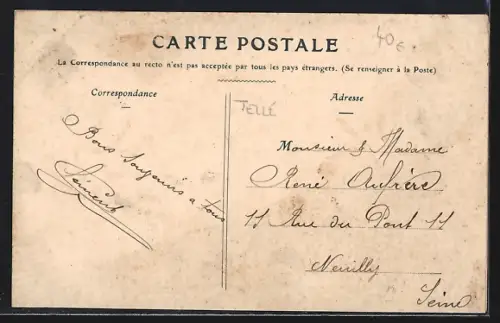 40€
CARTE POSTALE
La Correspondance au recto n'est pas acceptée par tous les pays étrangers. (Se renseigner à la Poste)
Correspondance
Bons souvenirs à tous
TELLÉ
Adresse
Monsieur & Madame
René Aufrère
11 Rue du Pont 11
Neuilly
Seine